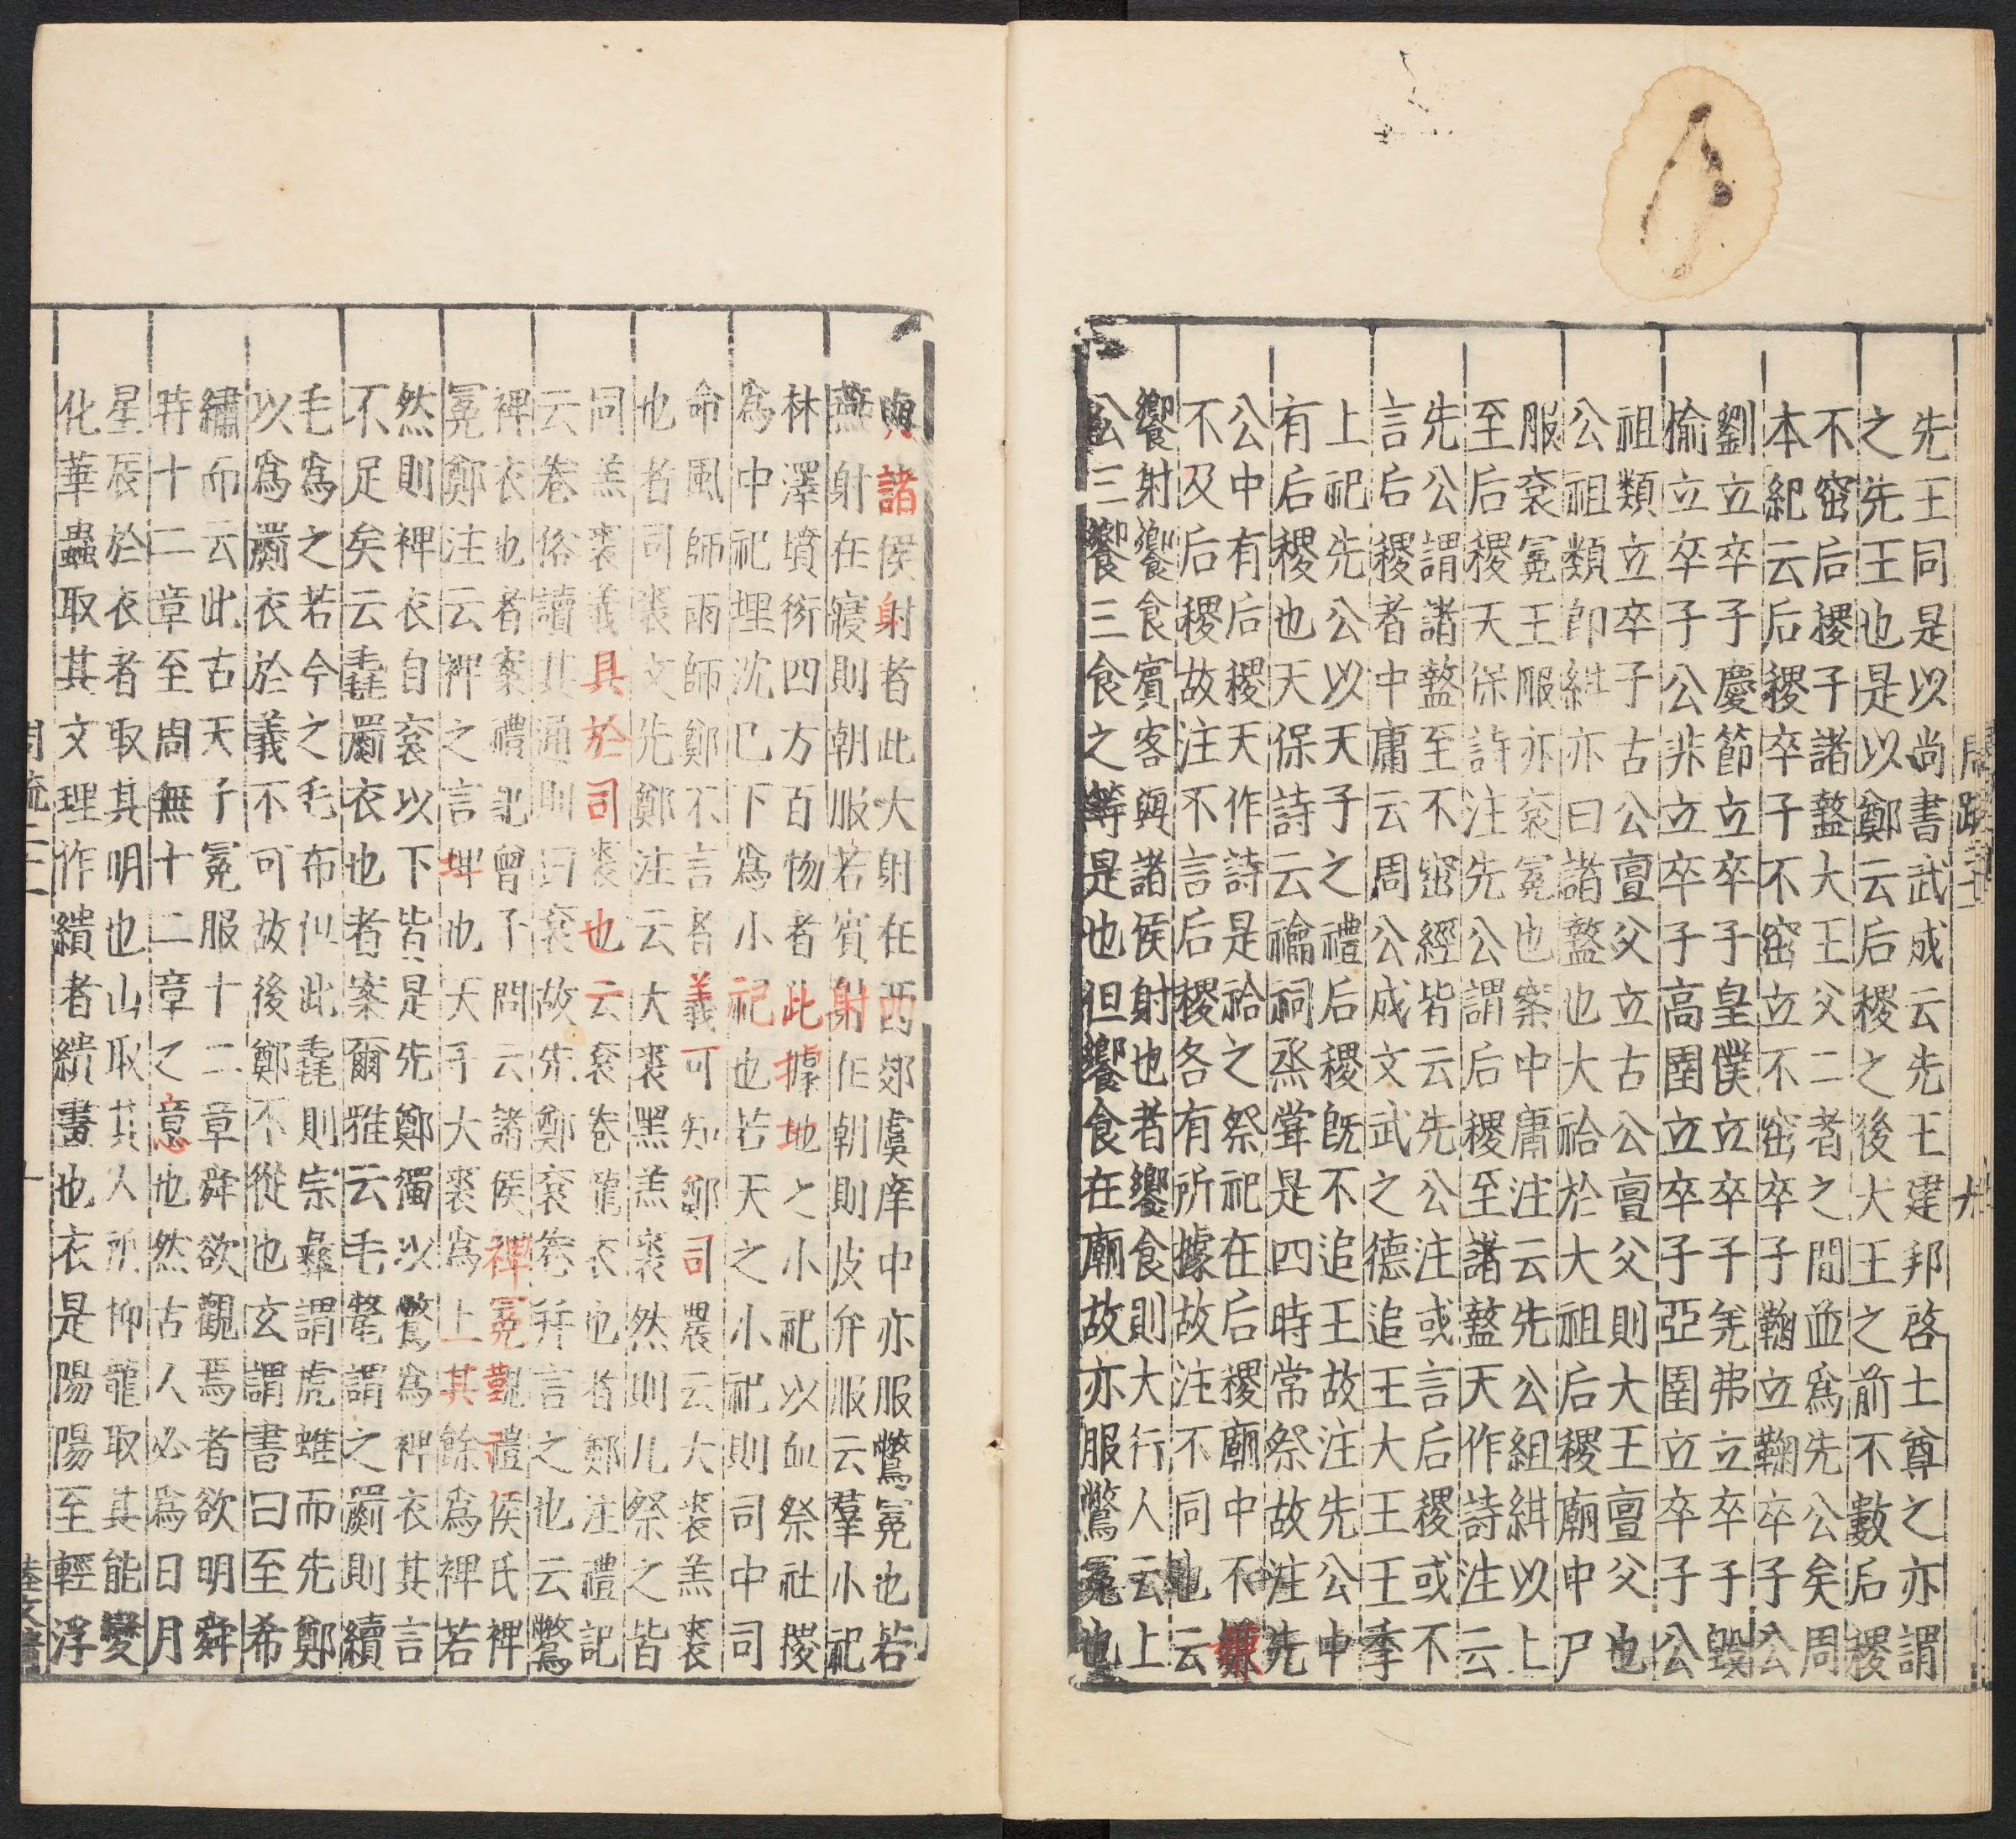 周疏二十一
九
先王同是以尚書武成云先王建邦啓土尊之亦謂
之先王也是以鄭云后稷之後大王之前不數后稷
不窋后稷子諸盩大王父二者之間並爲先公矣周
本紀云后稷卒子不窋立不窋卒子鞠立鞠卒子公
劉立卒子慶節立卒子皇僕立卒子羌弗立卒子毀
榆立卒子公非立卒子高圉立卒子亞圉立卒子公
祖類立卒子古公亶父立古公亶父則大王亶父也
公祖類即紺亦曰諸盩也大祫於大祖后稷廟中尸
服衮冕王服亦衮冕也案中庸注云先公組紺以上
至后稷天保詩注先公謂后稷至諸盩天作詩注云
先公謂諸盩至不窋經皆云先公注或言后稷或不
言后稷者中庸云周公成文武之德追王大王王季
上祀先公以天子之禮后稷旣不追王故注先公中
有后稷也天保詩云禴祠烝甞是四時常祭故注先
公中有后稷天作詩是祫之祭祀在后稷廟中不嫌
不及后稷故注不言后稷各有所據故注不同也云
饗射饗食賓客與諸侯射也者饗食則大行人云上
公三饗三食之等是也但饗食在廟故亦服鷩冕也
與諸侯射者此大射在西郊虞庠中亦服鷩冕也若
燕射在寢則朝服若賓射在朝則皮弁服云羣小祀
林澤墳衍四方百物者此據地之小祀以血祭社稷
爲中祀埋沈已下爲小祀也若天之小祀則司中司
命風師雨師鄭不言者義可知鄭司農云大裘羔裘
也者司裘文先鄭注云大裘黑羔裘然則凡祭之皆
同羔裘義具於司裘也云衮卷龍衣也者鄭注禮記
云卷俗讀其通則曰衮故先鄭衮卷并言之也云鷩
裨衣也者案禮記曾子問云諸侯裨冕覲禮侯氏裨
冕鄭注云裨之言埤也天子大裘爲上其餘爲裨若
然則裨衣自衮以下皆是先鄭獨以鷩爲裨衣其言
不足矣云毳罽衣也者案爾雅云毛氂謂之罽則續
毛爲之若今之毛布但此毳則宗彝謂虎蜼而先鄭
以爲罽衣於義不可故後鄭不從也玄謂書曰至希
繡而云此古天子冕服十二章舜欲觀焉者欲明舜
時十二章至周無十二章之意也然古人必爲日月
星辰於衣者取其明也山取其人所仰龍取其能變
化華蟲取其文理作繢者繢畫也衣是陽陽至輕浮
周疏二十一
十